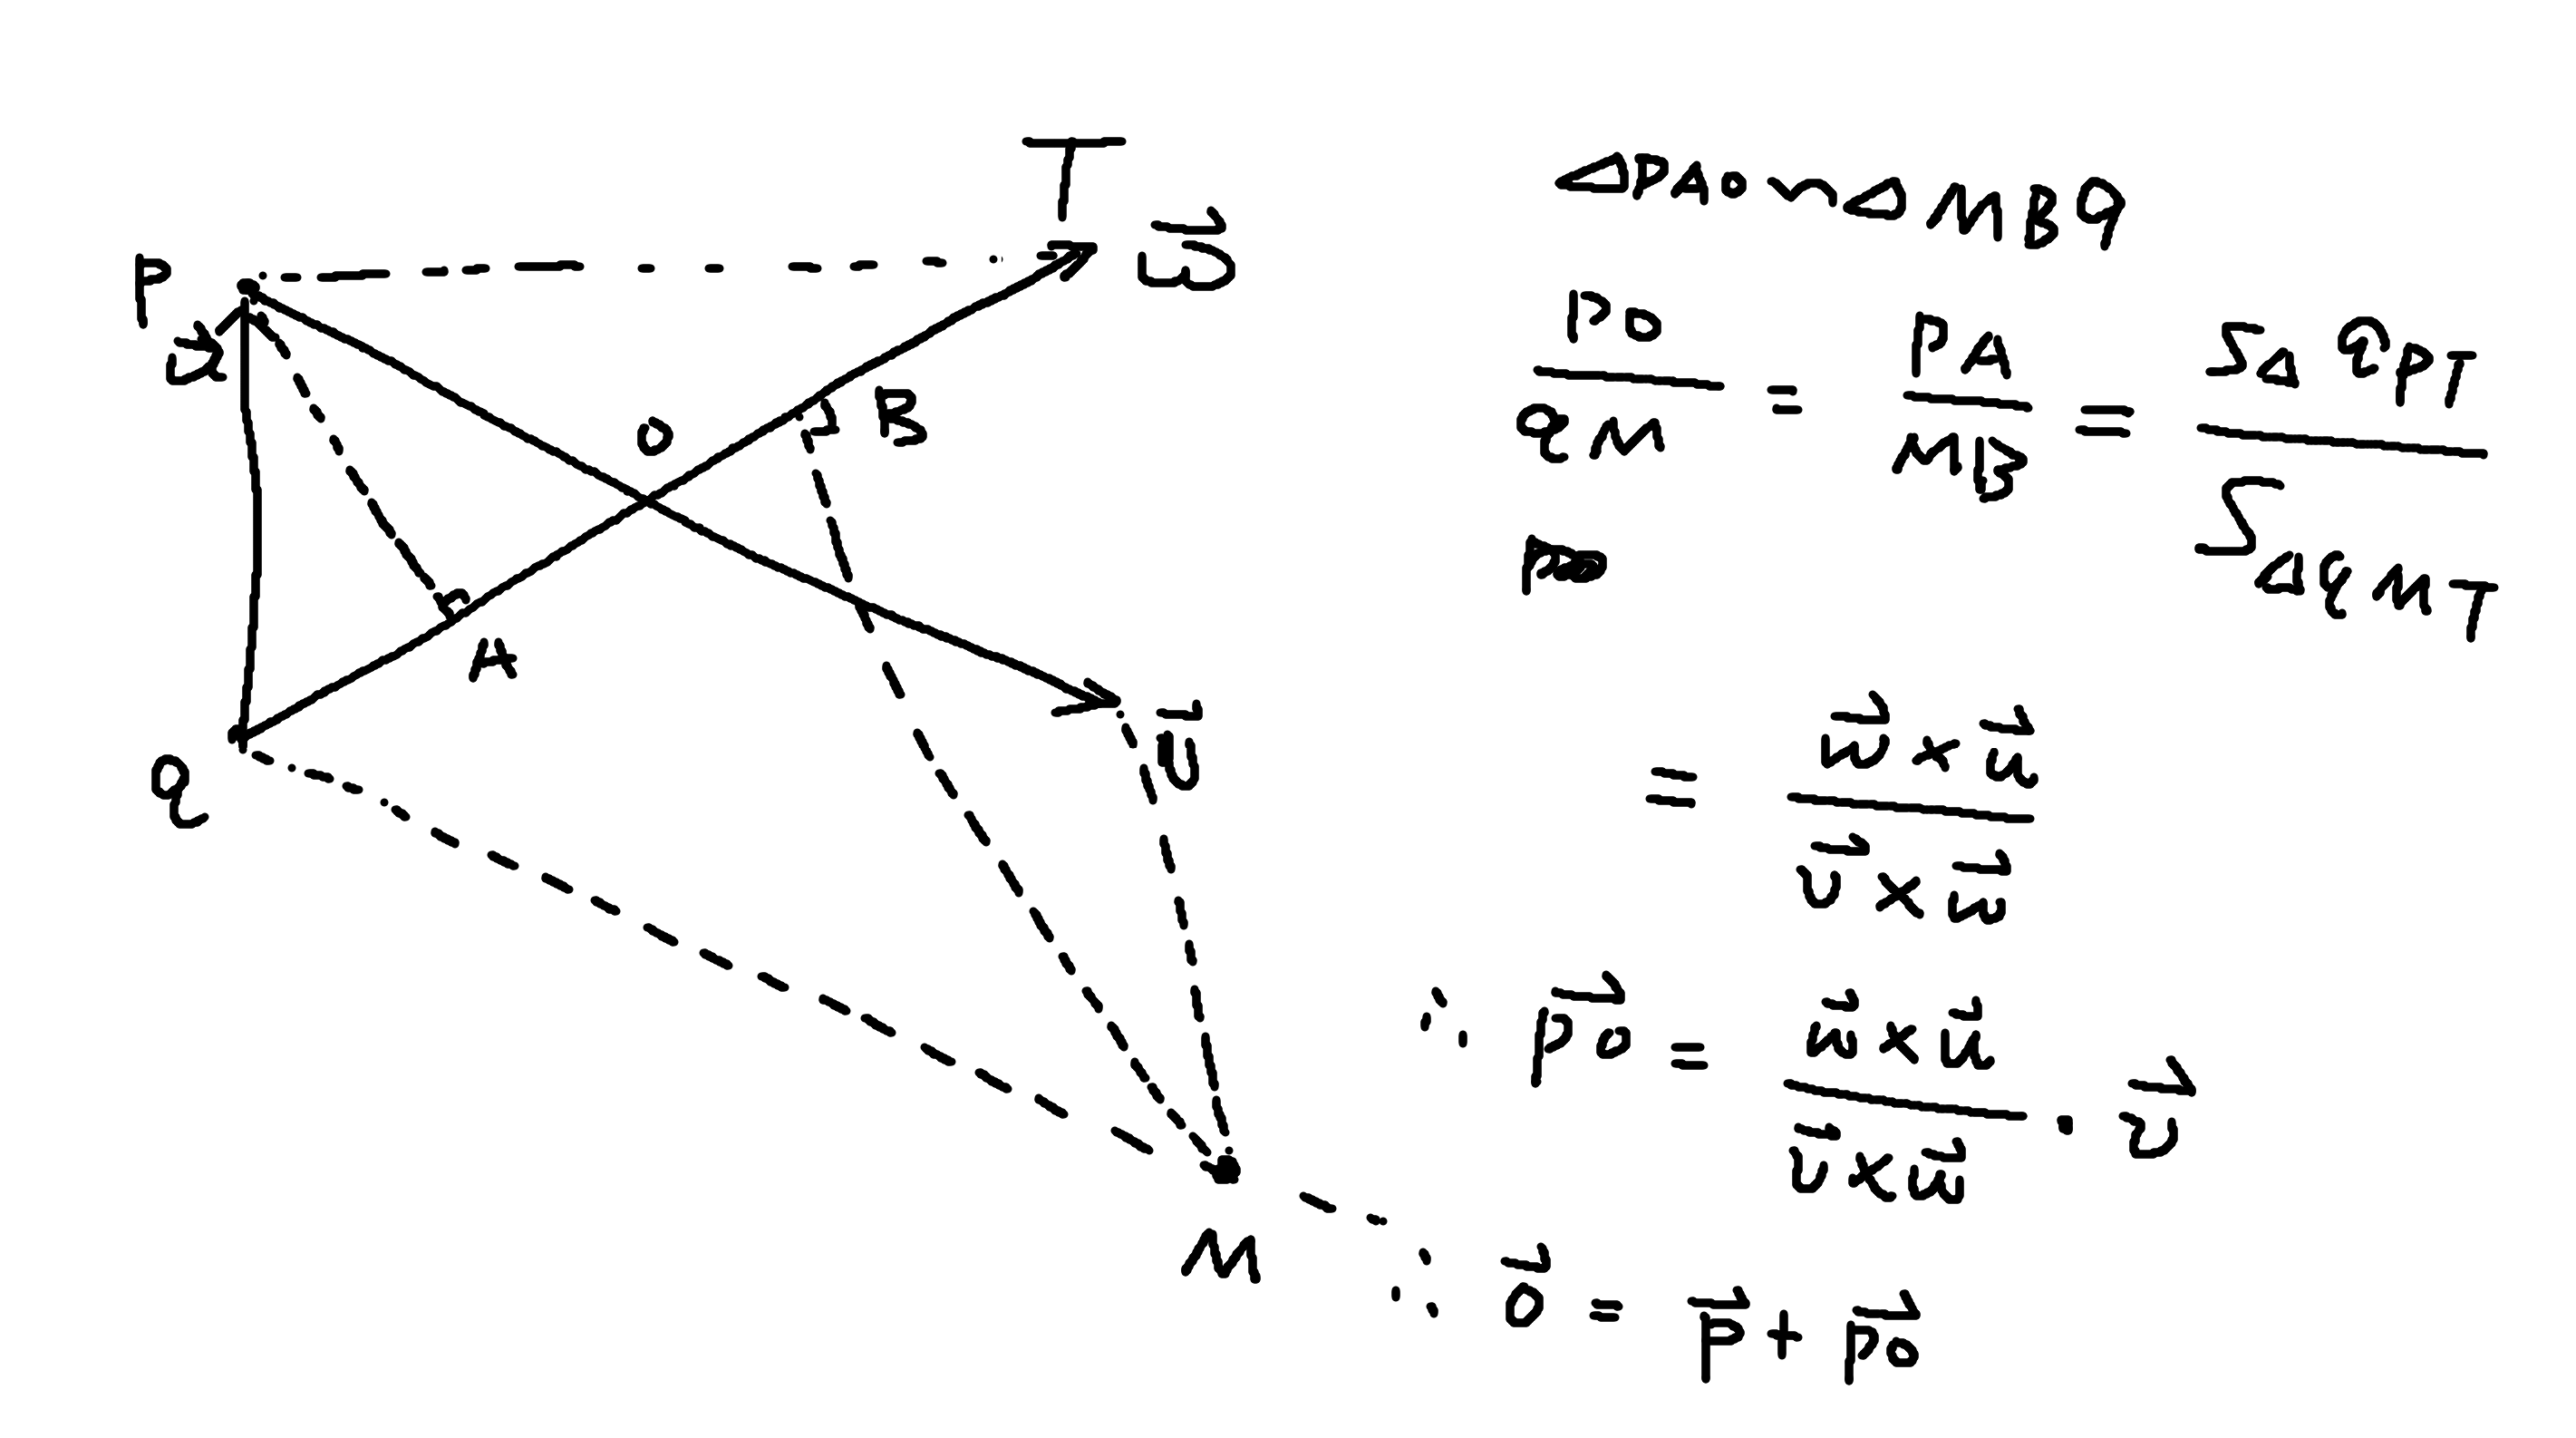 T
w⃗
P
u⃗
O
B
A
v⃗
Q
M
△PAO ∽ △MBQ
PO/QM = PA/MB = S△QPT/S△QMT
= (w⃗ × u⃗)/(v⃗ × w⃗)
∴ PO⃗ = (w⃗ × u⃗)/(v⃗ × w⃗) · v⃗
∴ O⃗ = P⃗ + PO⃗